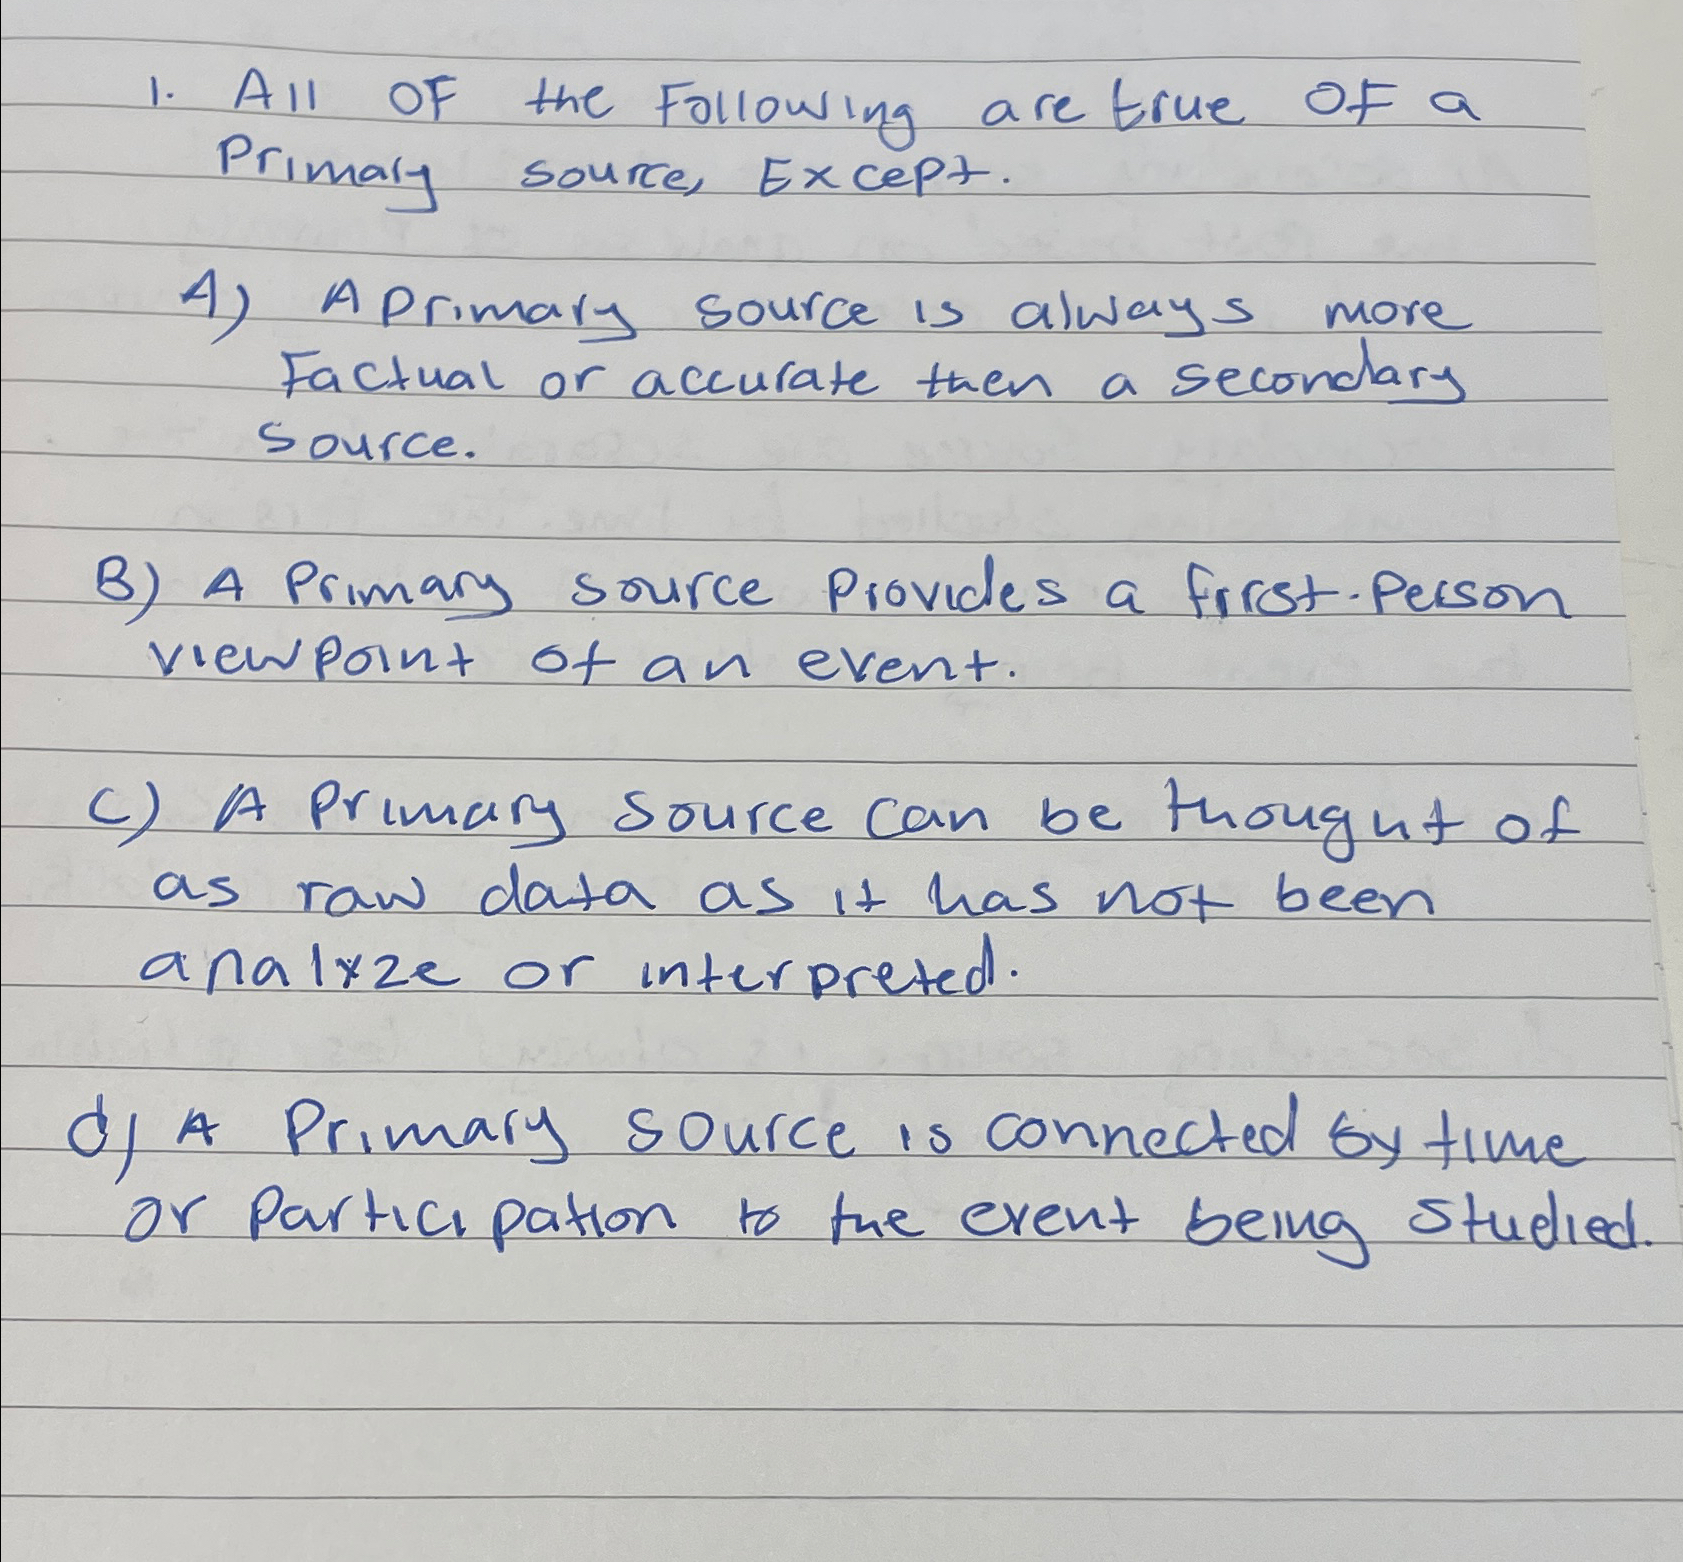 1. All OF the Following are true OF a
Primary source, Except.
A) A primary source is always more
Factual or accurate then a secondary
Source.
B) A Primary source Provides a first-Person
viewpoint of an event.
C) A Primary source can be thought of
as raw data as it has not been
analyze or interpreted.
d) A Primary source is connected by time
or Participation to the event being studied.